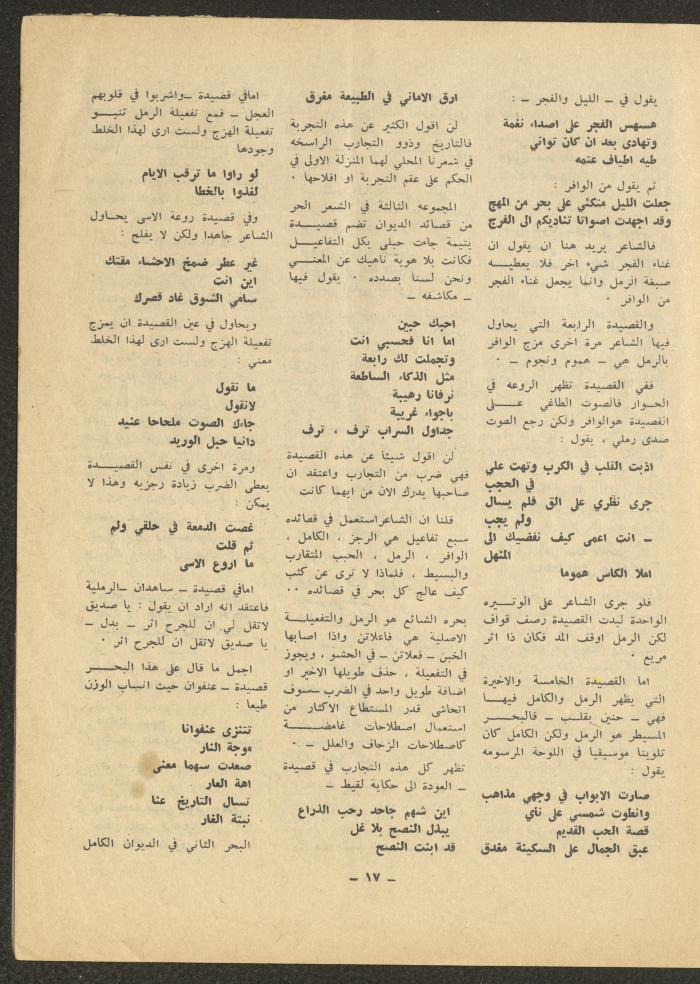 يقول في – الليل والفجر – :
هسهس الفجر على اصداء نغمة
وتهادى بعد ان كان تواني
طيه اطياف عتمه
ثم يقول من الوافر :
جعلت الليل متكئي على بحر من المهج
وقد اجهدت اصواتا تناديكم الى الفرج
فالشاعر يريد هنا ان يقول ان
غناء الفجر شيء اخر فلا يعطيه
صبغة الرمل وانما يجعل غناء الفجر
من الوافر .
والقصيدة الرابعة التي يحاول
فيها الشاعر مرة اخرى مزج الوافر
بالرمل هي – هموم ونجوم – .
ففي القصيدة تظهر الروعه في
الحوار فالصوت الطاغي على
القصيدة هوالوافر ولكن رجع الصوت
صدى رملي ، يقول :
اذبت القلب في الكرب وتهت علي
في الحجب
جرى نظري على الق فلم يسال
ولم يجب
– انت اعمى كيف نفضيك الى
المنهل
املا الكاس هموما
فلو جرى الشاعر على الوتيره
الواحدة لبدت القصيدة رصف قواف
لكن الرمل اوقف المد فكان ذا اثر
مريع .
اما القصيدة الخامسة والاخيرة
التي يظهر الرمل والكامل فيها
فهي – حنين بقلب – فالبحر
المسيطر هو الرمل ولكن الكامل كان
تلوينا موسيقيا في اللوحة المرسومه
يقول :
صارت الابواب في وجهي مذاهب
وانطوت شمسي على نأي
قصة الحب القديم
عبق الجمال على السكينة مغدق
ارق الاماني في الطبيعة مفرق
لن اقول الكثير عن هذه التجربة
فالتاريخ وذوو التجارب الراسخه
في شعرنا المحلي لهما المنزلة الاولى في
الحكم على عقم التجربة او افلاحها .
المجموعه الثالثة في الشعر الحر
من قصائد الديوان تضم قصيدة
يتيمة جاءت حبلى بكل التفاعيل
فكانت بلا هوية ناهيك عن المعنى
ونحن لسنا بصدده . يقول فيها
– مكاشفه –
احبك حبين
اما انا فحسبي انت
وتجملت لك رابعة
مثل الذكاء الساطعة
نرفانا رهيبة
باجواء غريبة
جداول السراب ترف ، ترف
لن اقول شيئا عن هذه القصيدة
فهي ضرب من التجارب واعتقد ان
صاحبها يدرك الان من ايهما كانت
قلنا ان الشاعراستعمل في قصائده
سبع تفاعيل هي الرجز ، الكامل ،
الوافر ، الرمل ، الخبب المتقارب
والبسيط ، فلماذا لا نرى عن كثب
كيف عالج كل بحر في قصائده . .
بحره الشائع هو الرمل والتفعيلة
الاصلية هي فاعلاتن واذا اصابها
الخبن – فعلاتن – في الحشو ، ويجوز
في التفعيلة ، حذف طويلها الاخير او
اضافة طويل واحد في الضرب –سوف
اتحاشى قدر المستطاع الاكثار من
استعمال اصطلاحات غامضة
كاصطلاحات الزحاف والعلل – .
تظهر كل هذه التجارب في قصيدة
– العودة الى حكاية لقيط –
اين شهم جاحد رحب الذراع
يبذل النصح بلا غل
قد ابنت النصح
امافي قصيدة –واشربوا في قلوبهم
العجل – فمع تفعيلة الرمل تنبو
تفعيلة الهزج ولست ارى لهذا الخلط
وجودها
لو راوا ما ترقب الايام
لفذوا بالخطا
وفي قصيدة روعة الاسى يحاول
الشاعر جاهدا ولكن لا يفلح :
غير عطر ضمخ الاحشاء مقتك
اين انت
سامي الشوق غاد قصرك
ويحاول في عين القصيدة ان يمزج
تفعيلة الهزج ولست ارى لهذا الخلط
معنى :
ما نقول
لانقول
جاءك الصوت ملحاحا عنيد
دانيا حبل الوريد
ومرة اخرى في نفس القصيدة
يعطى الضرب زيادة رجزيه وهذا لا
يمكن :
غصت الدمعة في حلقي ولم
ثم قلت
ما اروع الاسى
امافي قصيدة – ساهدان –الرملية
فاعتقد انه اراد ان يقول : يا صديق
لاتقل لي ان للجرح اثر – بدل –
يا صديق لاتقل ان للجرح اثر .
اجمل ما قال على هذا البحر
قصيدة – عنفوان حيث انساب الوزن
طيعا :
تتنزى عنفوانا
موجة النار
صعدت سهما معنى
اهة العار
تسال التاريخ عنا
نبتة الغار
البحر الثاني في الديوان الكامل
– ١٧ –